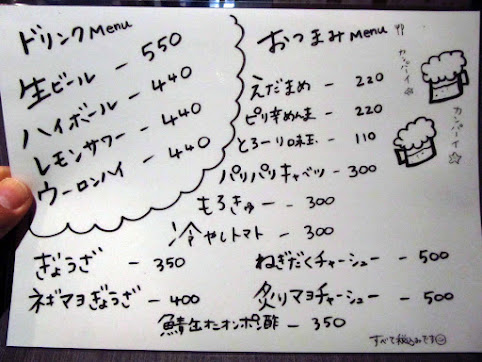 ドリンクMenu
生ビール - 550
ハイボール - 440
レモンサワー - 440
ウーロンハイ - 440
おつまみMenu
カンパーイ☆
カンパーイ☆
えだまめ - 220
ピリ辛めんま - 220
とろーり味玉 - 110
パリパリキャベツ - 300
もろきゅー - 300
冷やしトマト - 300
ぎょうざ - 350
ネギマヨぎょうざ - 400
ねぎだくチャーシュー - 500
炙りマヨチャーシュー - 500
鯖缶オニオンポン酢 - 350
すべて税込みです